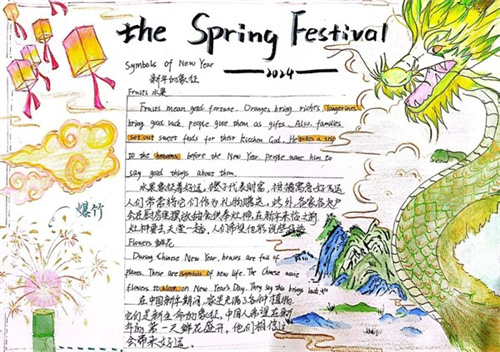 the Spring Festival
2024
Symbols of New Year
新年的象征
Fruits 水果
Fruits mean good fortune. Oranges bring riches, tangerines
bring good luck. people give them as gifts. Also, families
set out sweet foods for their kitchen God. He takes a trip
to the heavens before the New Year. people want him to
say good things about them.
水果象征着好运,橙子代表财富,柑橘寓意好运
人们常常将它们作为礼物赠送。此外,各家各户
会在厨房里摆放甜食供奉灶神,在新年来临之前
灶神要去天堂一趟,人们希望他能说些好话
Flowers 鲜花
爆竹
During Chinese New Year, houses are full of
plants. These are symbols of new life. The Chinese want
flowers to bloom on New Year's Day. They say this brings luck
在中国新年期间,家里充满了各种植物
它们是新生命的象征。中国人希望在新
年的第一天鲜花盛开,他们相信这
会带来好运。